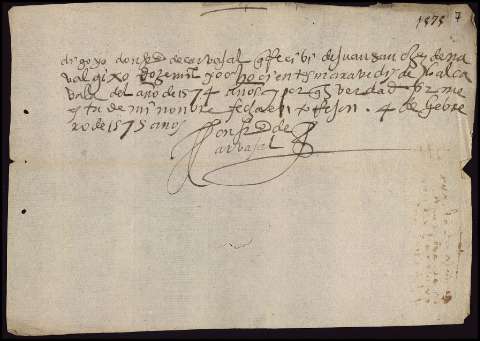 1575 7
digo yo don fr.do de carvajal q Recibi de juan san chez de na
val gixo doze mill y ochocientos maravedis de l alca
vala del año de 1574 años y por q es verdad firme
esta de mi nonbre fecha en 4 de hebre
ro de 1575 años
don fr.do de
carvajal